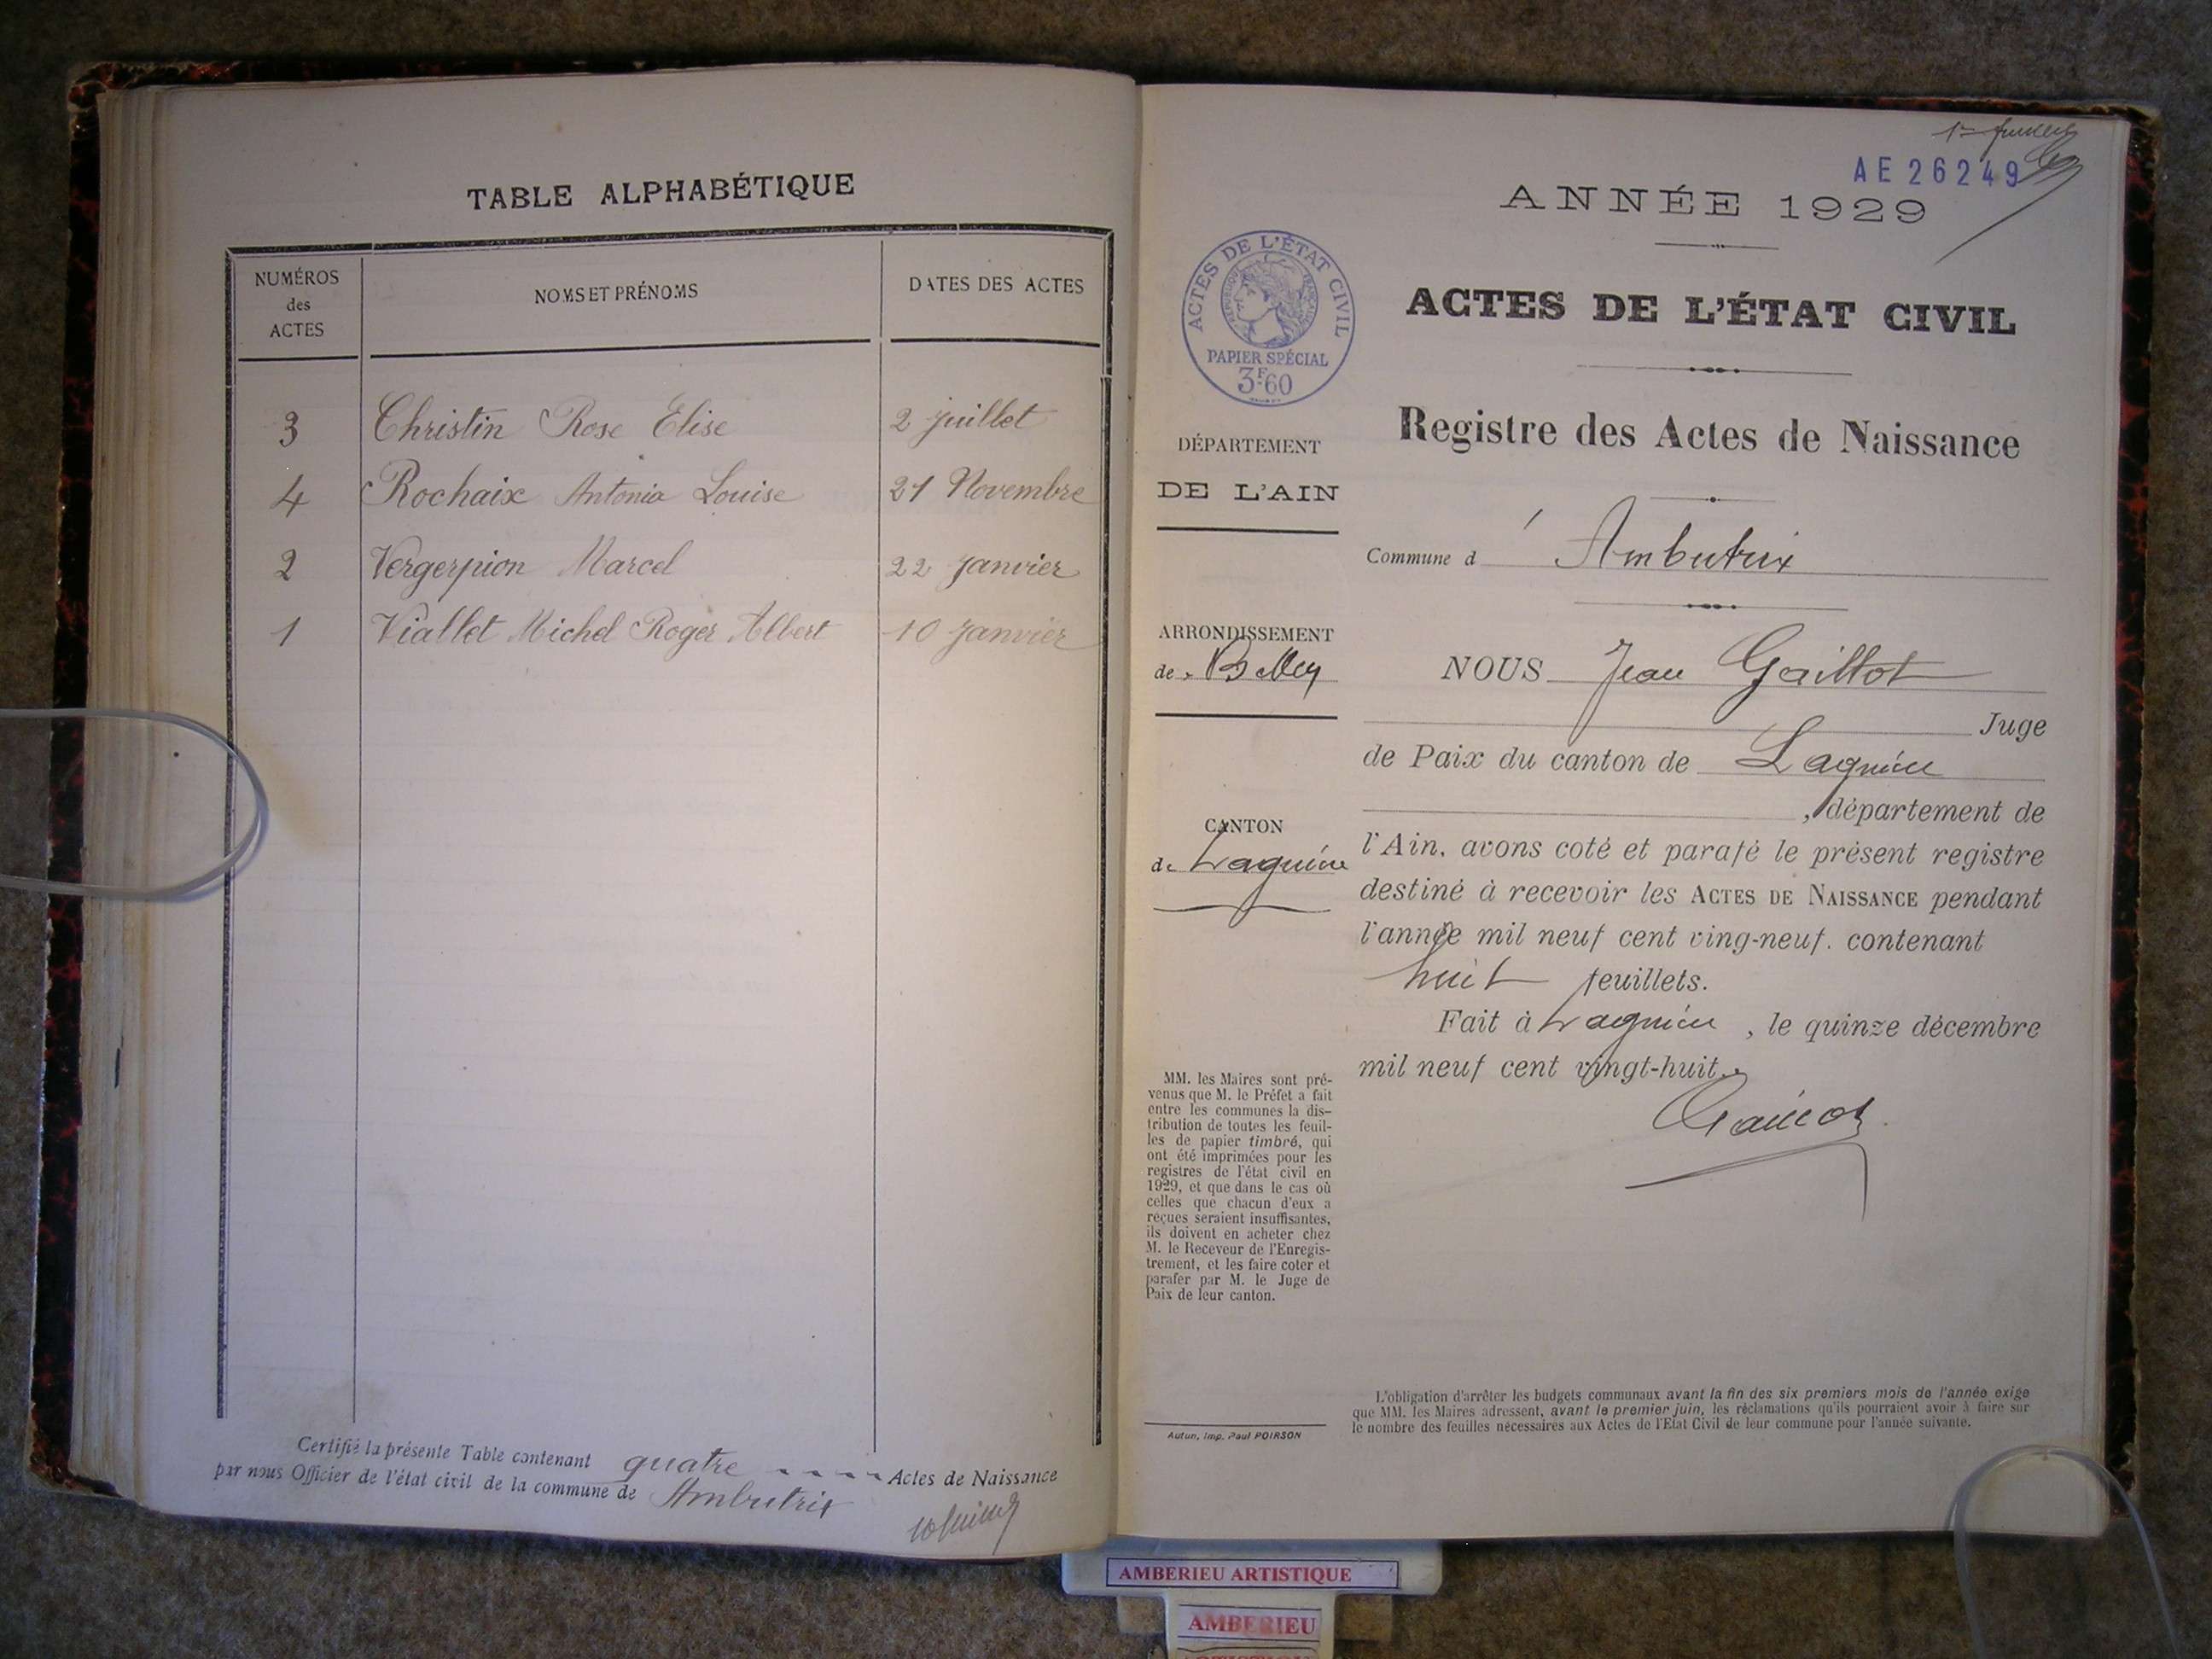 TABLE ALPHABÉTIQUE
NUMÉROS des ACTES
NOMS ET PRÉNOMS
DATES DES ACTES
3 Christin Rose Elise 2 juillet
4 Rochaix Antonia Louise 21 Novembre
2 Vergerpion Marcel 22 janvier
1 Viallet Michel Roger Albert 10 janvier
Certifié la présente Table contenant quatre Actes de Naissance
par nous Officier de l'état civil de la commune de Ambutrix
AE 26249
ANNÉE 1929
ACTES DE L'ÉTAT CIVIL
PAPIER SPÉCIAL
3F60
ACTES DE L'ÉTAT CIVIL
Registre des Actes de Naissance
DÉPARTEMENT
DE L'AIN
Commune d' Ambutrix
ARRONDISSEMENT
de Belley
NOUS Jean Gaillot
Juge
de Paix du canton de Lagnieu
, département de
CANTON
de Lagnieu
l'Ain, avons coté et parafé le présent registre
destiné à recevoir les ACTES DE NAISSANCE pendant
l'année mil neuf cent ving-neuf. contenant
huit feuillets.
Fait à Lagnieu, le quinze décembre
mil neuf cent vingt-huit.
MM. les Maires sont pré-
venus que M. le Préfet a fait
entre les communes la dis-
tribution de toutes les feuil-
les de papier timbré, qui
ont été imprimées pour les
registres de l'état civil en
1929, et que dans le cas où
celles que chacun d'eux a
reçues seraient insuffisantes,
ils doivent en acheter chez
M. le Receveur de l'Enregis-
trement, et les faire coter et
parafer par M. le Juge de
Paix de leur canton.
Autun, Imp. Paul POIRSON
L'obligation d'arrêter les budgets communaux avant la fin des six premiers mois de l'année exige
que MM. les Maires adressent, avant le premier juin, les réclamations qu'ils pourraient avoir à faire sur
le nombre des feuilles nécessaires aux Actes de l'Etat Civil de leur commune pour l'année suivante.
AMBERIEU ARTISTIQUE
AMBERIEU